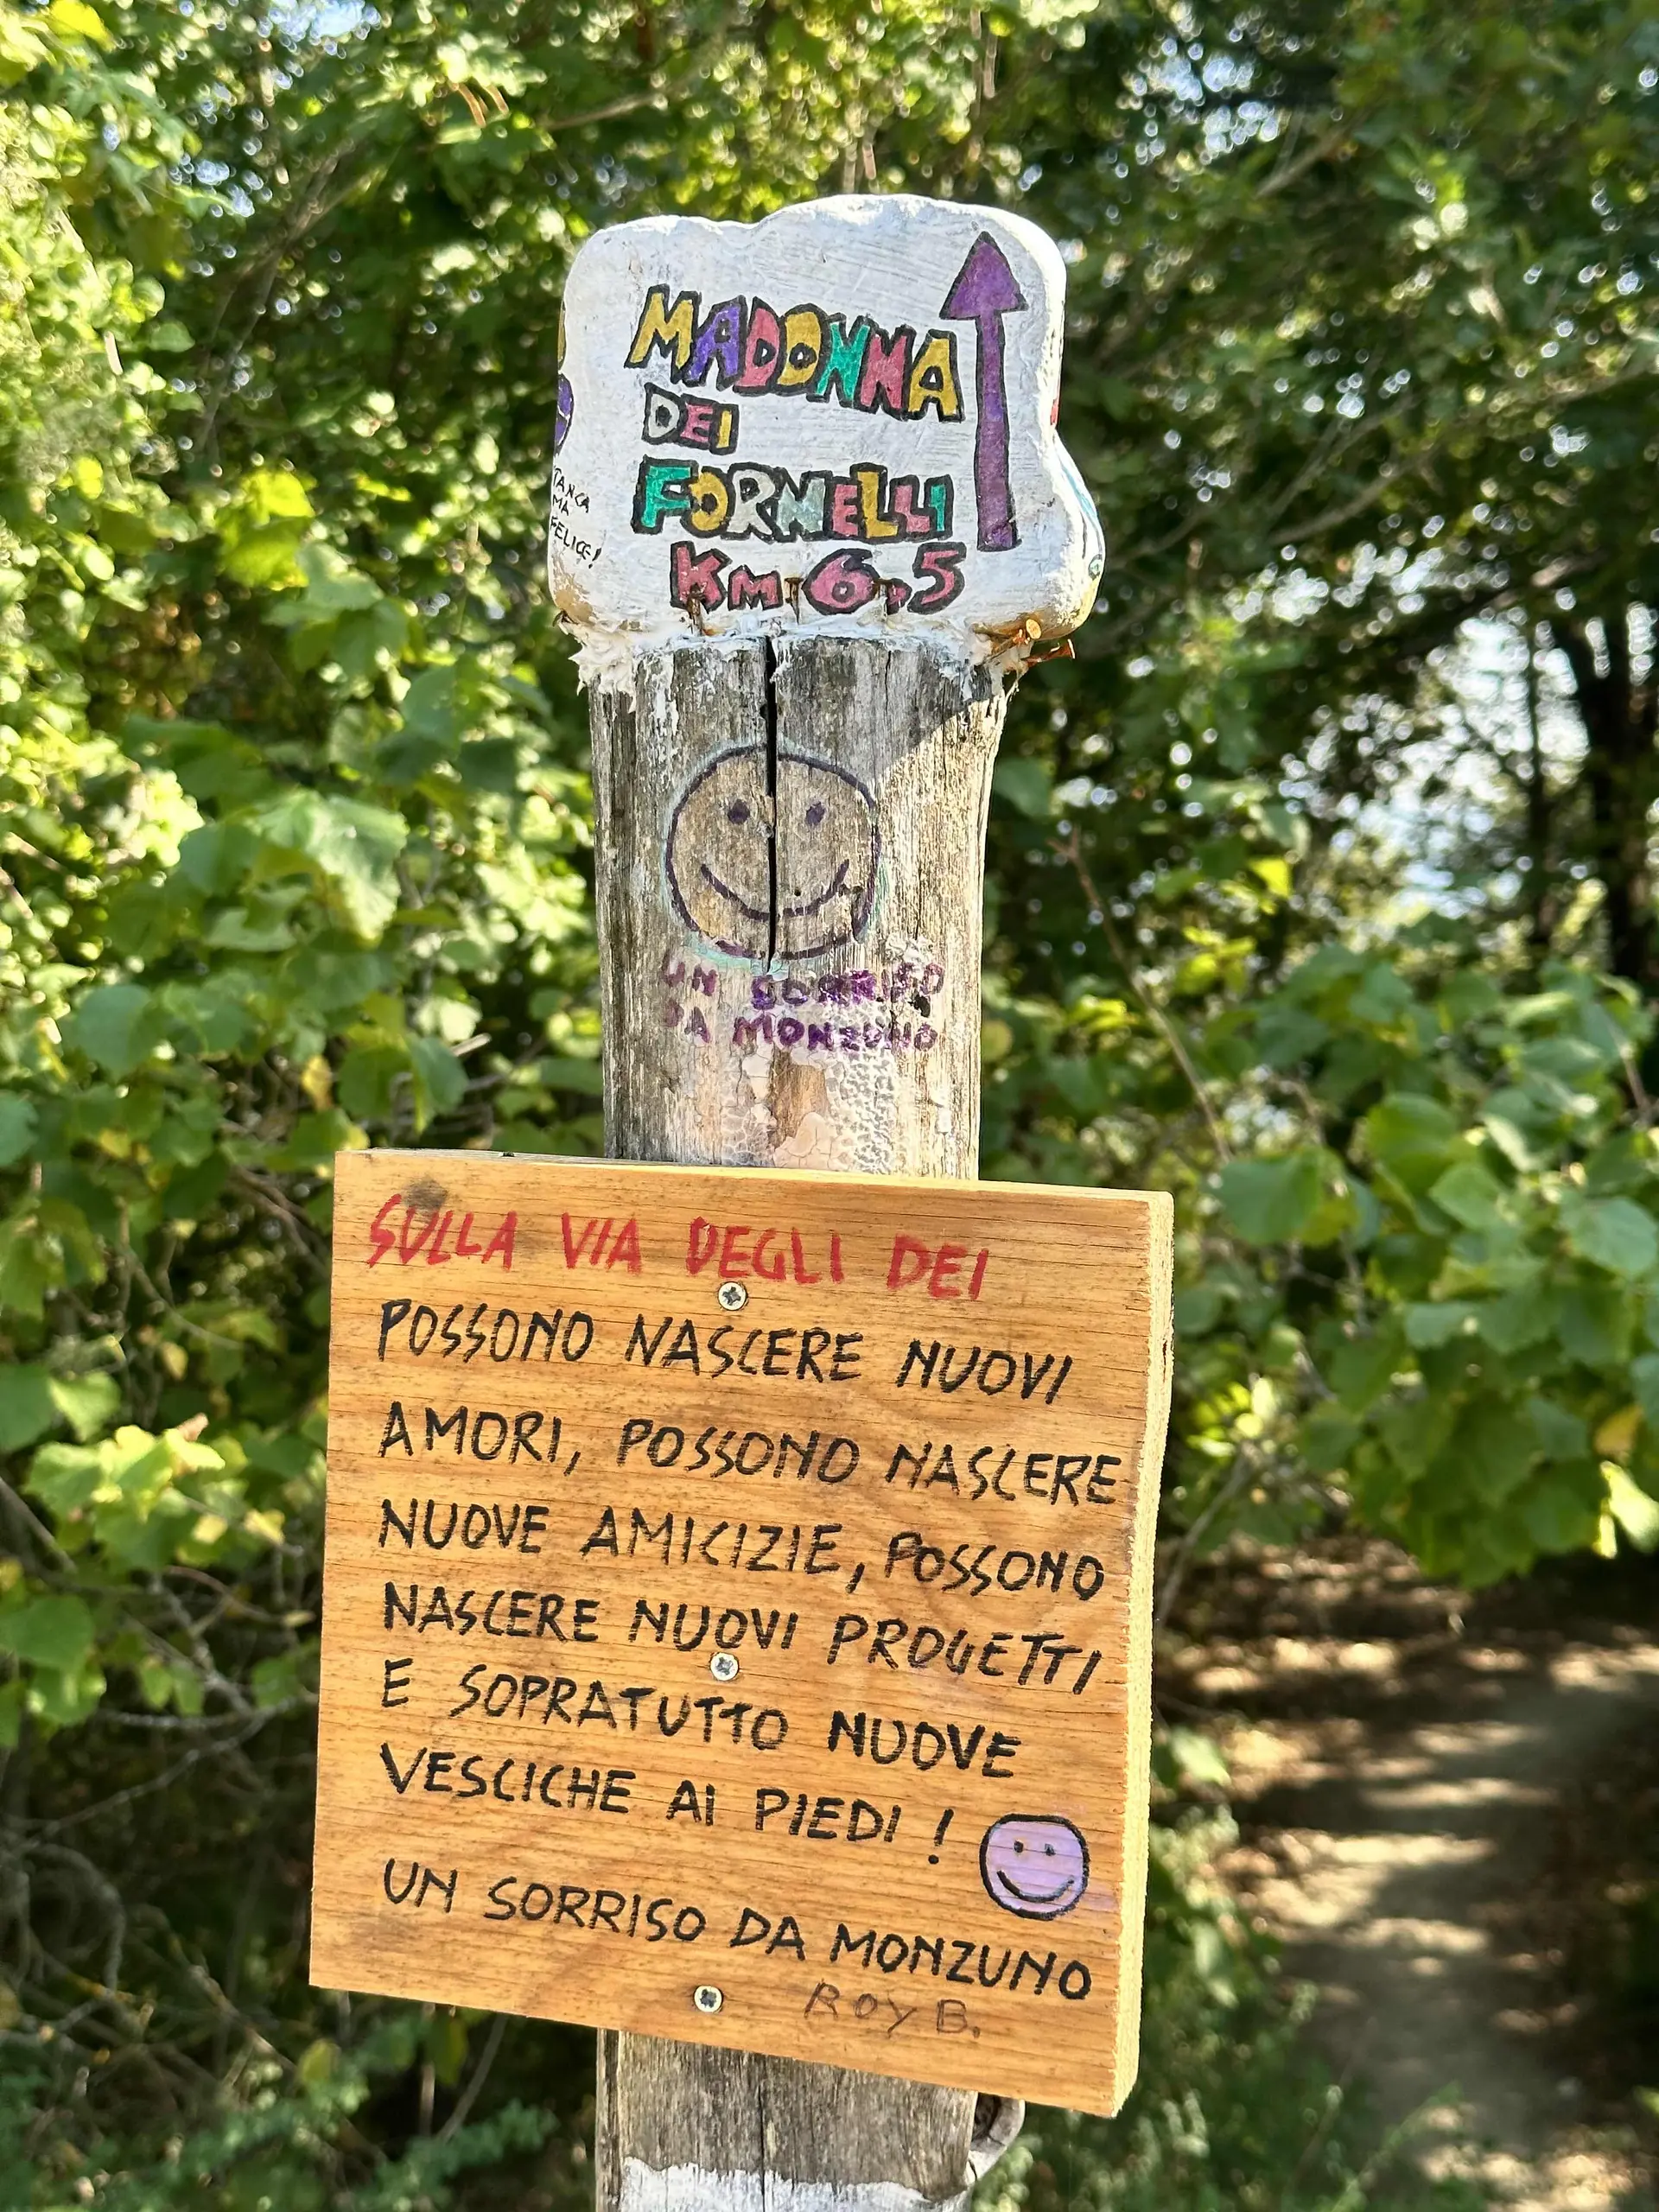 MADONNA
DEI
FORNELLI
Km 6,5
MA
FELICE!
UN SORRISO
DA MONZUNO
SULLA VIA DEGLI DEI
POSSONO NASCERE NUOVI
AMORI, POSSONO NASCERE
NUOVE AMICIZIE, POSSONO
NASCERE NUOVI PROGETTI
E SOPRATUTTO NUOVE
VESCICHE AI PIEDI!
UN SORRISO DA MONZUNO
ROY B.